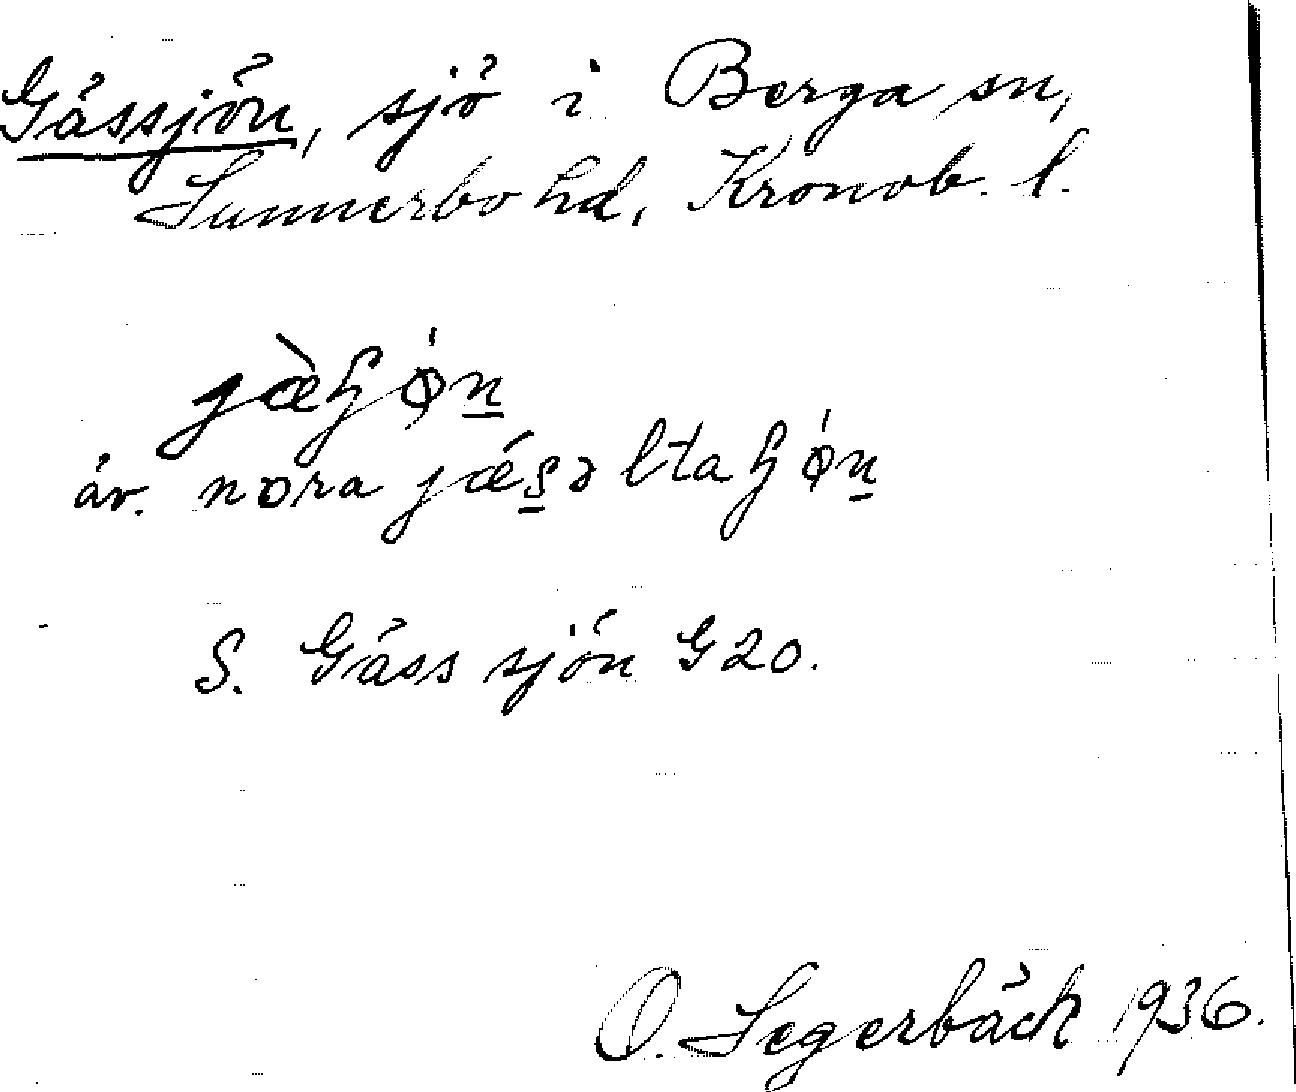 Gässjön, sjö i Berga sn,
Sunnerbo hd, Kronob. l.
jæ̀ɧǿn̲
äv. nora jǽs̲əltaɧǿn̲
S. Gäss sjön G20.
O. Segerbäck 1936.